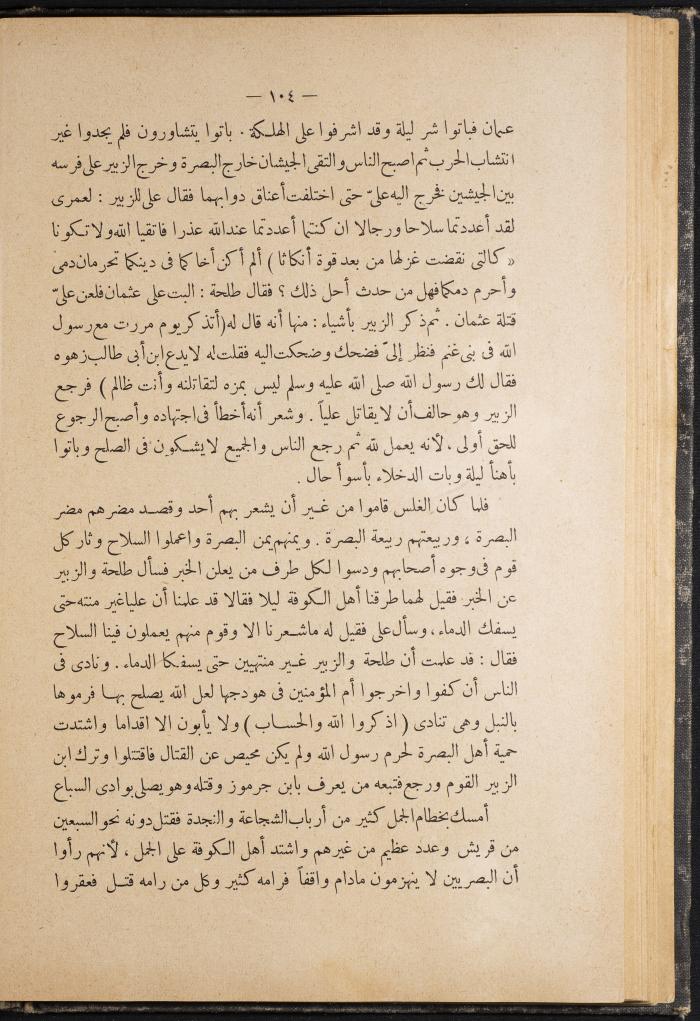 — ١٠٤ —
عمان فباتوا شر ليلة وقد اشرفوا على الهلكة . باتوا يتشاورون فلم يجدوا غير
انتشاب الحرب ثم اصبح الناس والتقى الجيشان خارج البصرة وخرج الزبير على فرسه
بين الجيشين فخرج اليه علىّ حتى اختلفت أعناق دوابهما فقال على للزبير : لعمرى
لقد أعددتما سلاحا ورجالا ان كنتما أعددتما عند الله عذرا فاتقيا الله ولا تكونا
« كالتى نقضت غزلها من بعد قوة أنكاثا ) ألم أكن أخا كما فى دينكما تحرمان دمى
وأحرم دمكما فهل من حدث أحل ذلك ؟ فقال طلحة : البت على عثمان فلعن علىّ
قتلة عثمان . ثم ذكر الزبير بأشياء : منها أنه قال له (أتذكر يوم مررت مع رسول
الله فى بنى غنم فنظر إلىّ فضحك وضحكت اليه فقلت له لا يدع ابن أبى طالب زهوه
فقال لك رسول الله صلى الله عليه وسلم ليس بمزه لتقاتلنه وأنت ظالم ) فرجع
الزبير وهو حالف أن لا يقاتل علياً . وشعر أنه أخطأ فى اجتهاده وأصبح الرجوع
للحق أولى ، لأنه يعمل لله ثم رجع الناس والجميع لا يشكون فى الصلح وباتوا
بأهنأ ليلة وبات الدخلاء بأسوأ حال .
فلما كان الغلس قاموا من غير أن يشعر بهم أحد وقصد مضرهم مضر
البصرة ، وربيعتهم ربيعة البصرة . ويمنهم يمن البصرة واعملوا السلاح وثار كل
قوم فى وجوه أصحابهم ودسوا لكل طرف من يعلن الخبر فسأل طلحة والزبير
عن الخبر فقيل لهما طرقنا أهل الكوفة ليلا فقالا قد علمنا أن عليا غير منته حتى
يسفك الدماء ، وسأل على فقيل له ما شعرنا الا وقوم منهم يعملون فينا السلاح
فقال : قد علمت أن طلحة والزبير غير منتهيين حتى يسفكا الدماء . ونادى فى
الناس أن كفوا واخرجوا أم المؤمنين فى هودجها لعل الله يصلح بها فرموها
بالنبل وهى تنادى ( اذكروا الله والحساب ) ولا يأبون الا اقداما واشتدت
حمية أهل البصرة لحرم رسول الله ولم يكن محيص عن القتال فاقتتلوا وترك ابن
الزبير القوم ورجع فتبعه من يعرف بابن جرموز وقتله وهو يصلى بوادى السباع
أمسك بخطام الجمل كثير من أرباب الشجاعة والنجدة فقتل دونه نحو السبعين
من قريش وعدد عظيم من غيرهم واشتد أهل الكوفة على الجمل ، لأنهم رأوا
أن البصريين لا ينهزمون مادام واقفاً فرامه كثير وكل من رامه قتل فعقروا